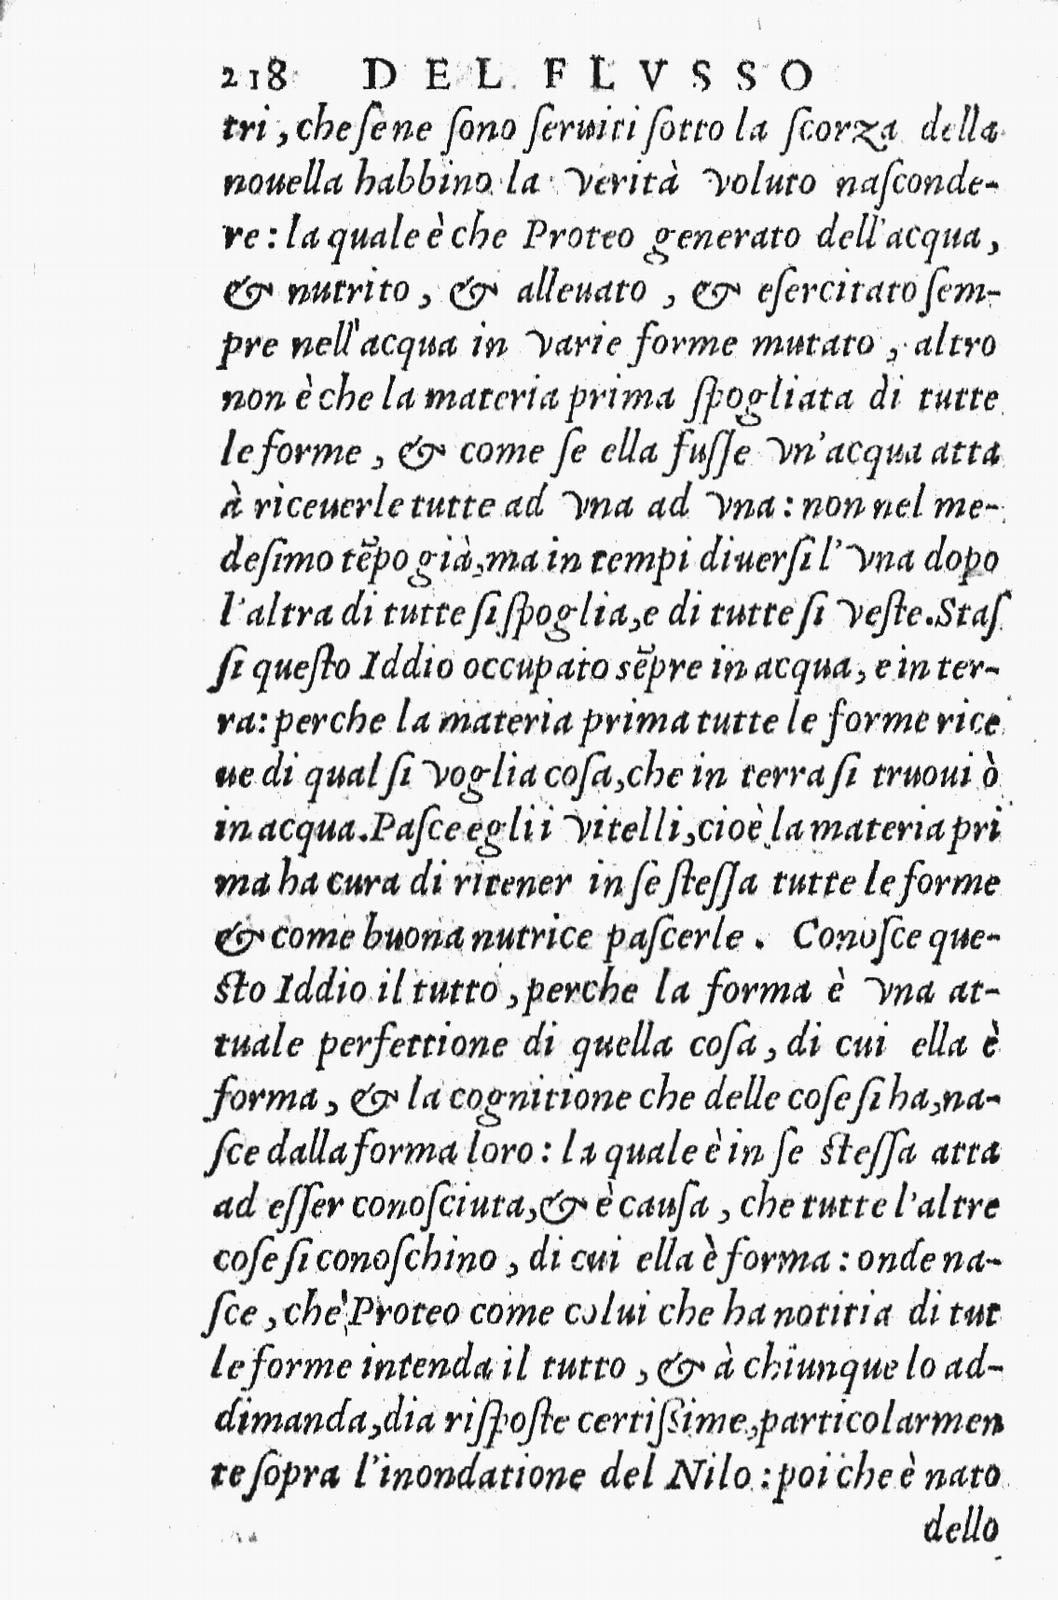 218 DEL FLVSSO
tri, che se ne sono seruiti sotto la scorza della
nouella habbino la verità voluto nasconde-
re: la quale è che Proteo generato dell'acqua,
& nutrito, & alleuato, & esercitato sem-
pre nell'acqua in varie forme mutato, altro
non è che la materia prima spogliata di tutte
le forme, & come se ella fusse vn'acqua atta
à riceuerle tutte ad vna ad vna: non nel me-
desimo tẽpo già, ma in tempi diuersi l'vna dopo
l'altra di tutte si spoglia, e di tutte si veste. Stas
si questo Iddio occupato sẽpre in acqua, e in ter-
ra: perche la materia prima tutte le forme rice
ue di qual si voglia cosa, che in terra si truoui ò
in acqua. Pasce egli i vitelli, cioè la materia pri
ma ha cura di ritener in se stessa tutte le forme
& come buona nutrice pascerle. Conosce que-
sto Iddio il tutto, perche la forma è vna at-
tuale perfettione di quella cosa, di cui ella è
forma, & la cognitione che delle cose si ha, na-
sce dalla forma loro: la quale è in se stessa atta
ad esser conosciuta, & è causa, che tutte l'altre
cose si conoschino, di cui ella è forma: onde na-
sce, che Proteo come colui che ha notitia di tut
le forme intenda il tutto, & à chiunque lo ad-
dimanda, dia risposte certissime, particolarmen
te sopra l'inondatione del Nilo: poi che è nato
dello